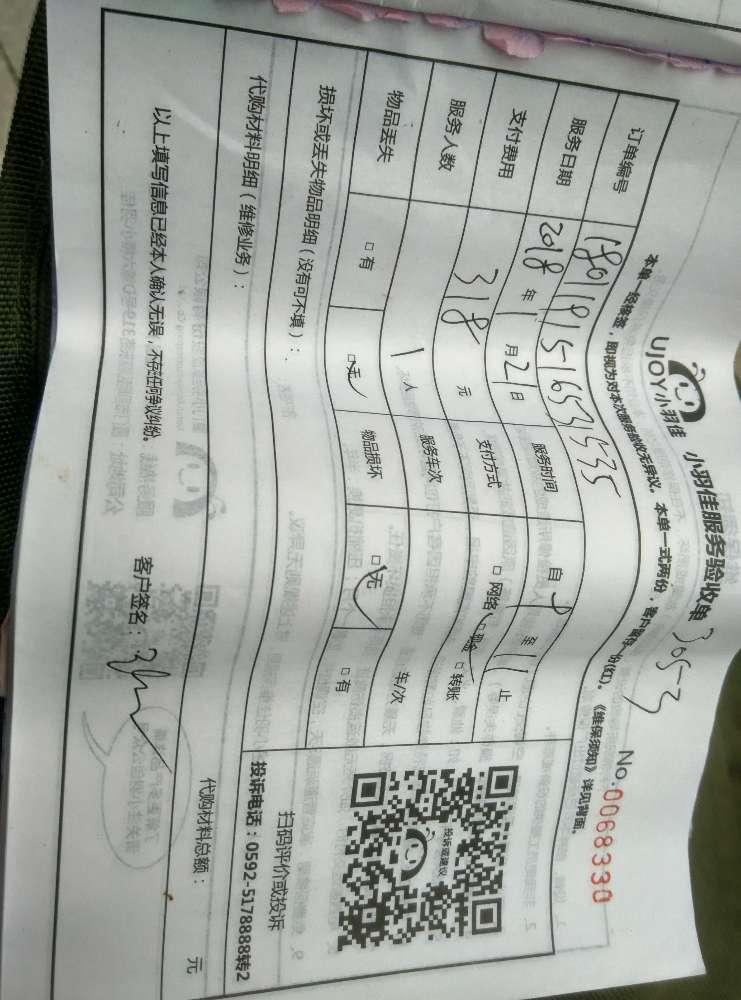 UJOY小羽佳 小羽佳服务验收单 305-3
No:0068330
本单一经缔签，即视为对本次服务验收无异议。本单一式两份，客户留存一份(红)。《维保须知》详见背面。
订单编号
服务日期 2018 年 1 月 21 日 服务时间 自 至 11 止
支付费用 318 元 支付方式 □ 网络 □ 现金 □ 转账
服务人数 1 人 服务车次 车/次
物品丢失 □ 有 □ 无 物品损坏 □ 无 □ 有
损坏或丢失物品明细（没有可不填）：
代购材料明细（维修业务）：
代购材料总额： 元
投诉或建议
扫码评价或投诉
投诉电话：0592-5178888转2
以上填写信息已经本人确认无误，不存在任何争议纠纷。 客户签名：